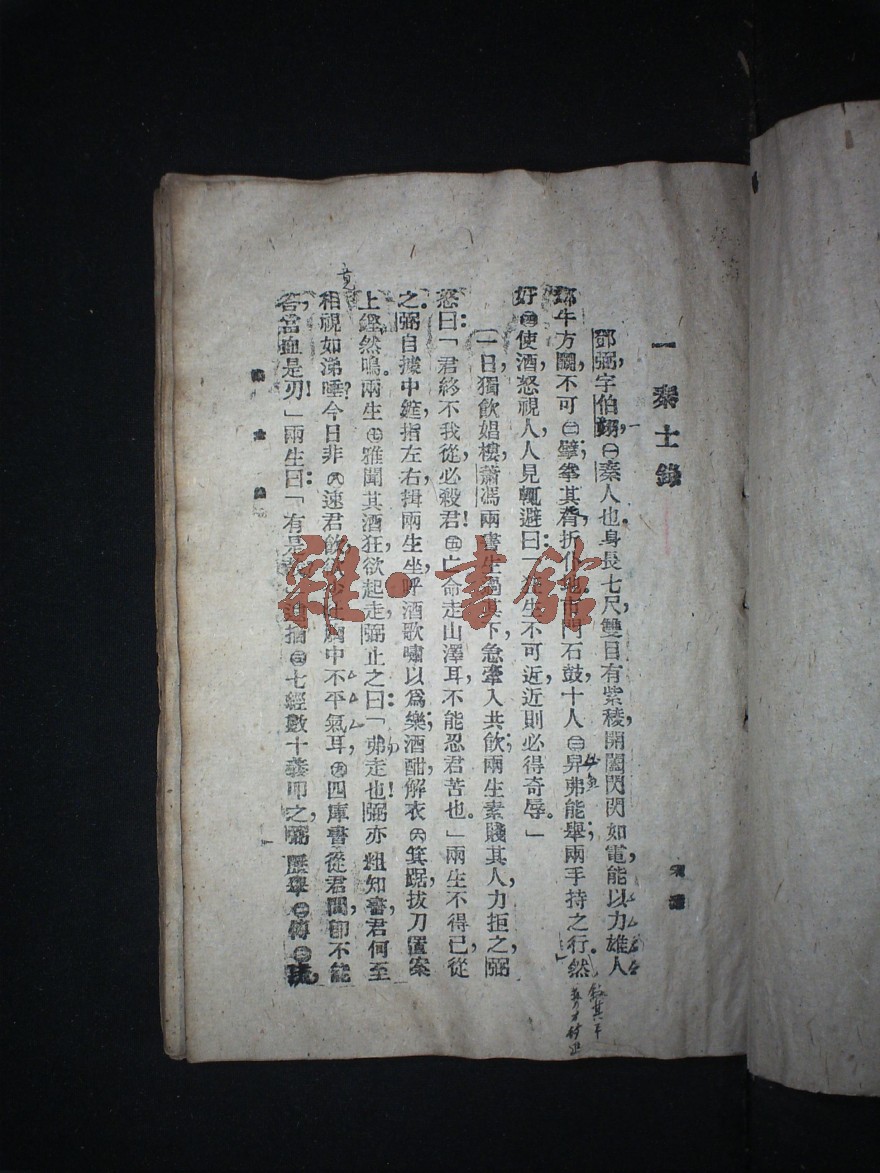 一 秦士錄
宋濂
鄧弼，字伯翊，㊀秦人也。身長七尺，雙目有紫稜，開闔閃閃如電，能以力雄人
鄰牛方鬭，不可㊁擘，拳其脊，折仆地；市門石鼓，十人㊂舁弗能舉，兩手持之行。然
好㊃使酒，怒視人，人見輒避，曰：「狂生不可近，近則必得奇辱。」
一日，獨飲娼樓，蕭馮兩書生過其下，急牽入共飲；兩生素賤其人，力拒之，弼
怒曰：「君終不我從，必殺君！㊄亡命走山澤耳，不能忍君苦也。」兩生不得已，從
之。弼自據中筵，指左右，揖兩生坐，呼酒歌嘯以爲樂；酒酣，解衣㊅箕踞，拔刀置案
上，鏗然鳴。兩生㊆雅聞其酒狂，欲起走，弼止之曰：「弗走也！弼亦粗知書，君何至
相視如涕唾？今日非㊇速君飲，欲少吐胸中不平氣耳，㊈四庫書從君問，卽不能
答，當血是刃！」兩生曰：「有是 七經數十義叩之，弼歷舉㊁傳㊂疏，
雜·書館